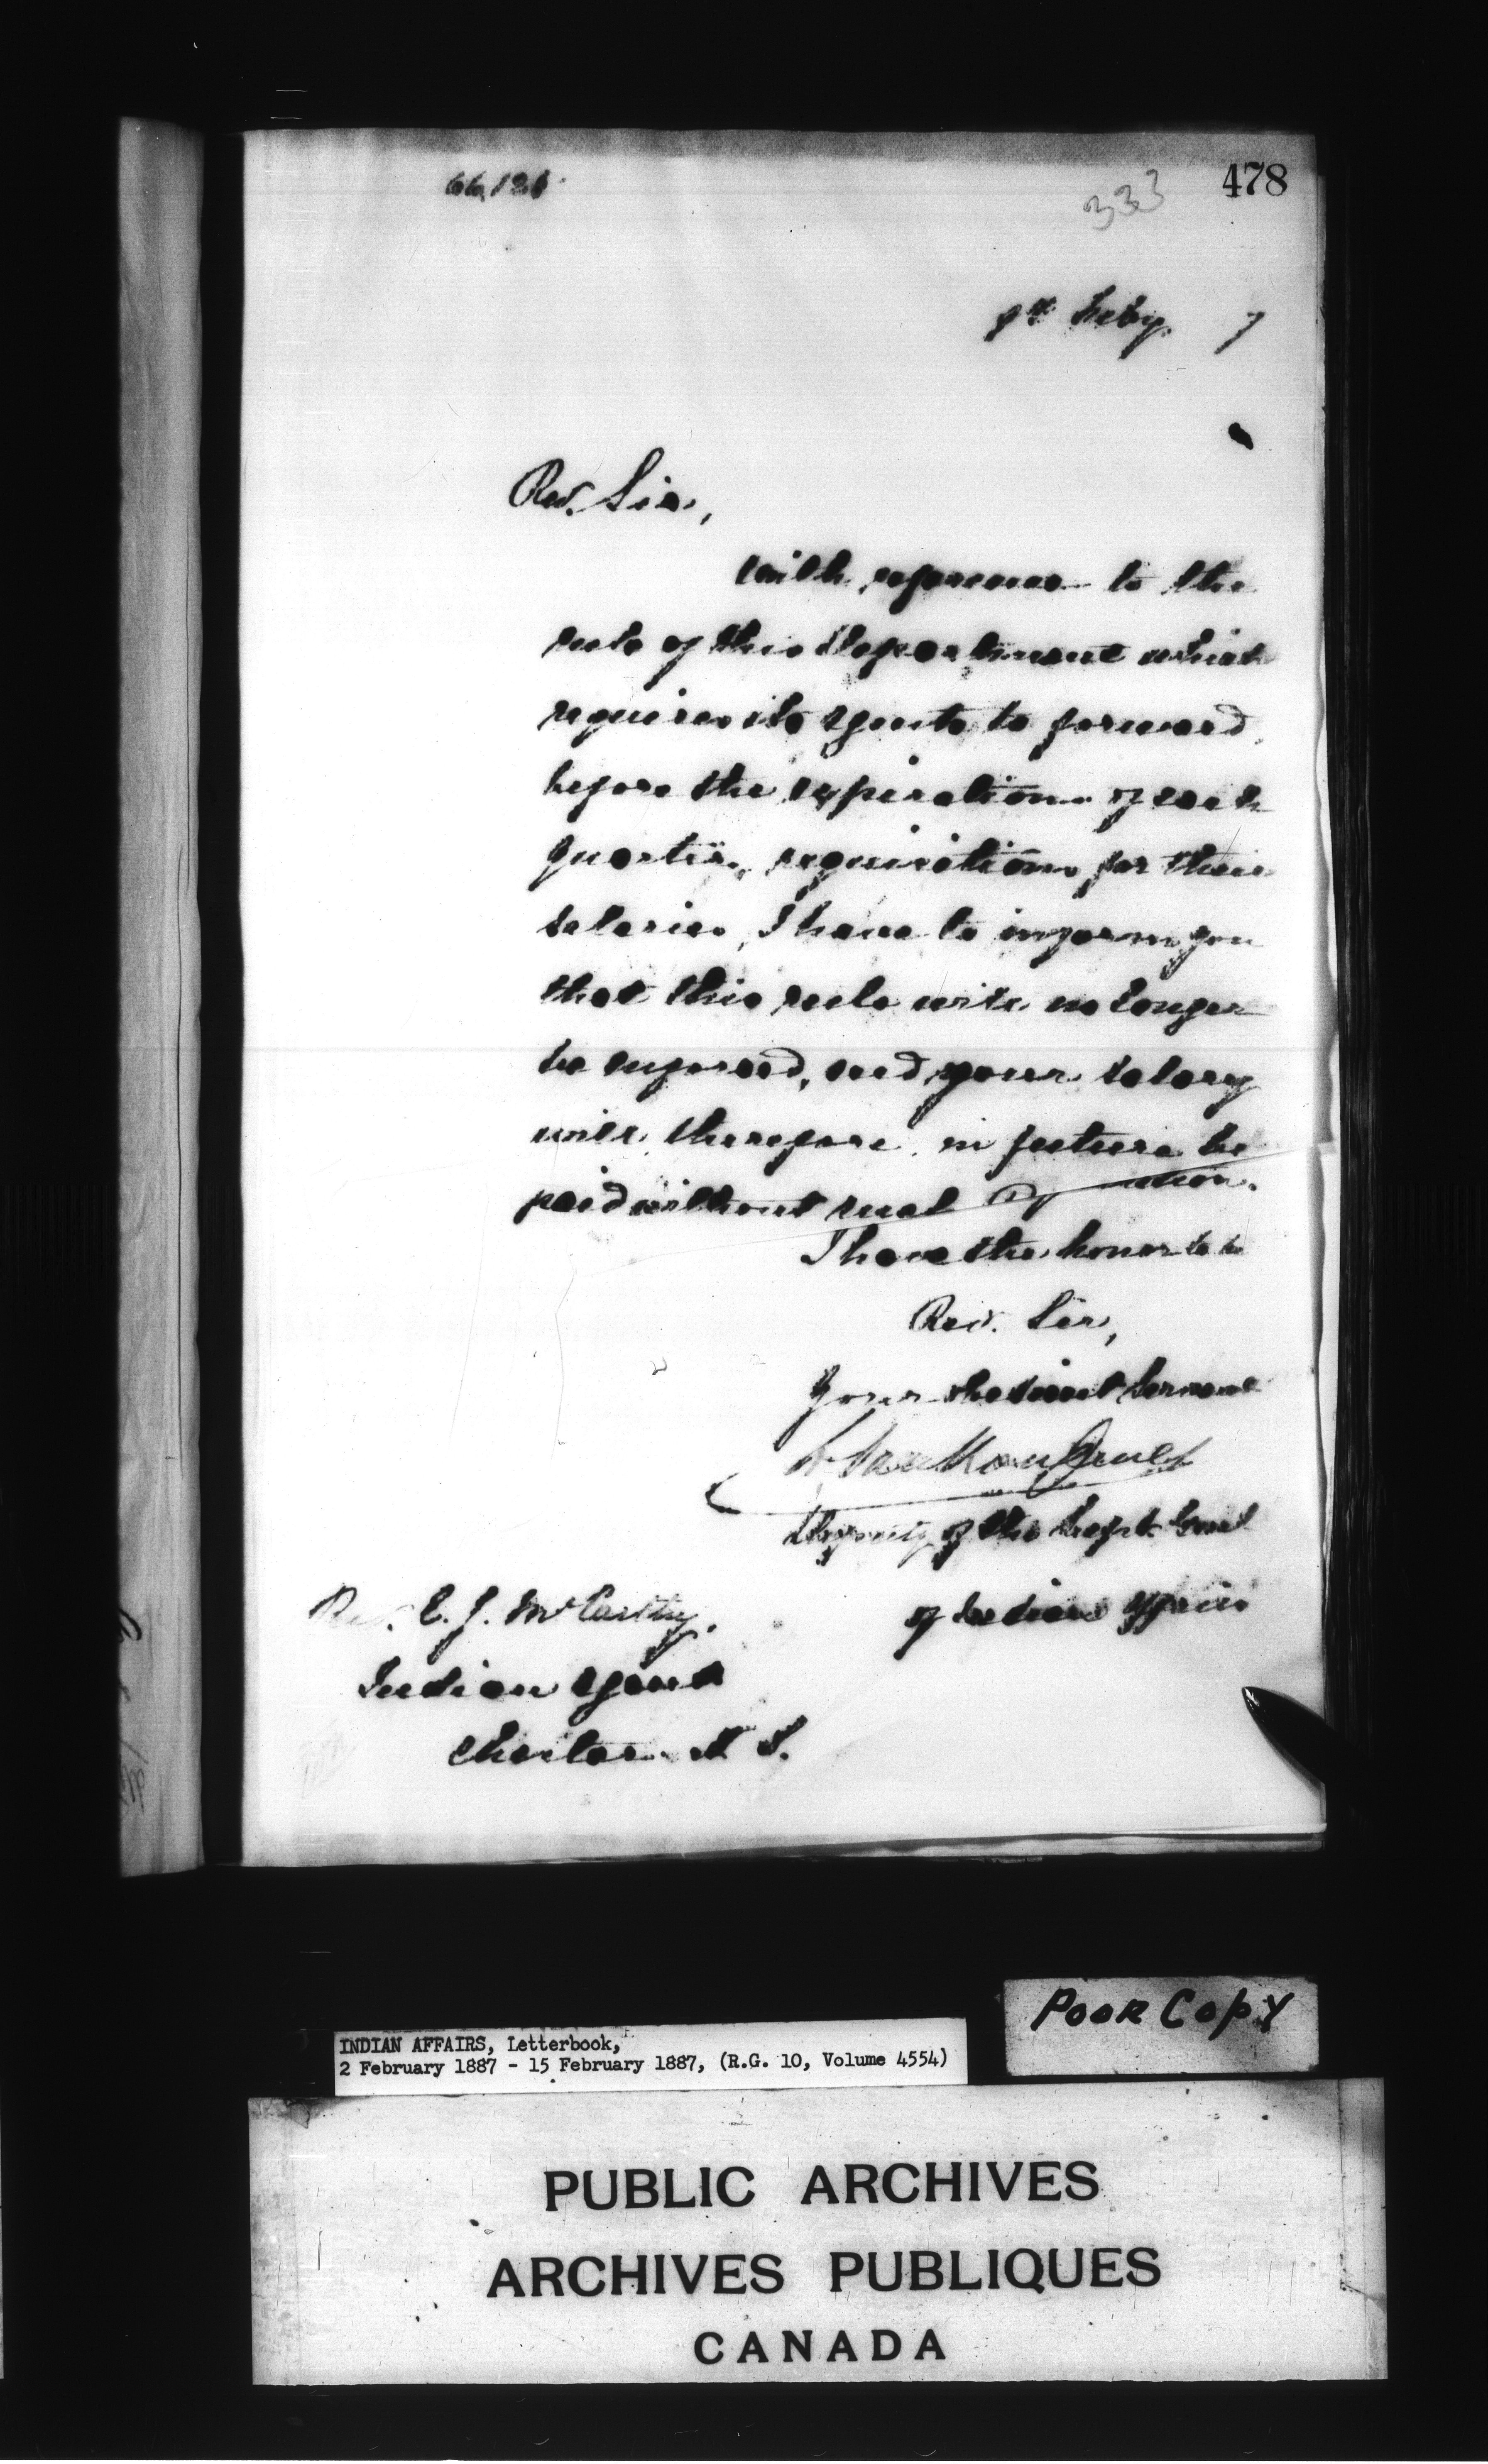 66,121
333
478
9th Feby 7
Rev. Sir,
With reference to the
rule of this Department which
requires its Agents to forward,
before the expiration of each
quarter, requisitions for their
salaries, I have to inform you
that this rule will no longer
be enforced, and your salary
will, therefore, in future be
paid without such
I have the honor to be
Rev. Sir,
Your obedient Servant
L. VanKoughnet
Deputy of the Supt. Genl
of Indian Affairs
Rev. E. J. McCarthy,
Indian Agent
Chester N. S.
Poor Copy
INDIAN AFFAIRS, Letterbook,
2 February 1887 - 15 February 1887, (R.G. 10, Volume 4554)
PUBLIC ARCHIVES
ARCHIVES PUBLIQUES
CANADA